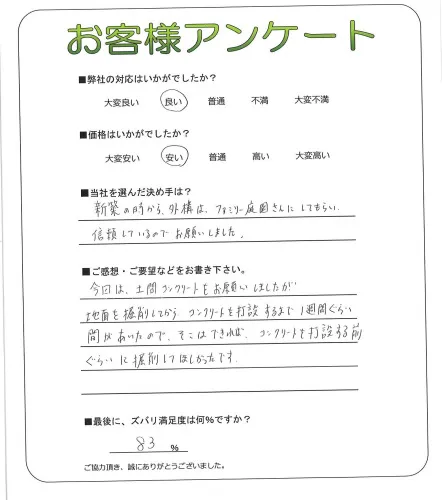 お客様アンケート
■弊社の対応はいかがでしたか?
大変良い 良い 普通 不満 大変不満
■価格はいかがでしたか?
大変安い 安い 普通 高い 大変高い
■当社を選んだ決め手は?
新築の時から、外構は、ファミリー庭園さんにしてもらい
信頼しているのでお願いしました。
■ご感想・ご要望などをお書き下さい。
今回は、土間コンクリートをお願いしましたが
地面を掘削してから コンクリートを打設するまで1週間ぐらい
間があいたので、そこはできれば、コンクリートを打設する前
ぐらいに掘削してほしかったです。
■最後に、ズバリ満足度は何%ですか?
83 %
ご協力頂き、誠にありがとうございました。